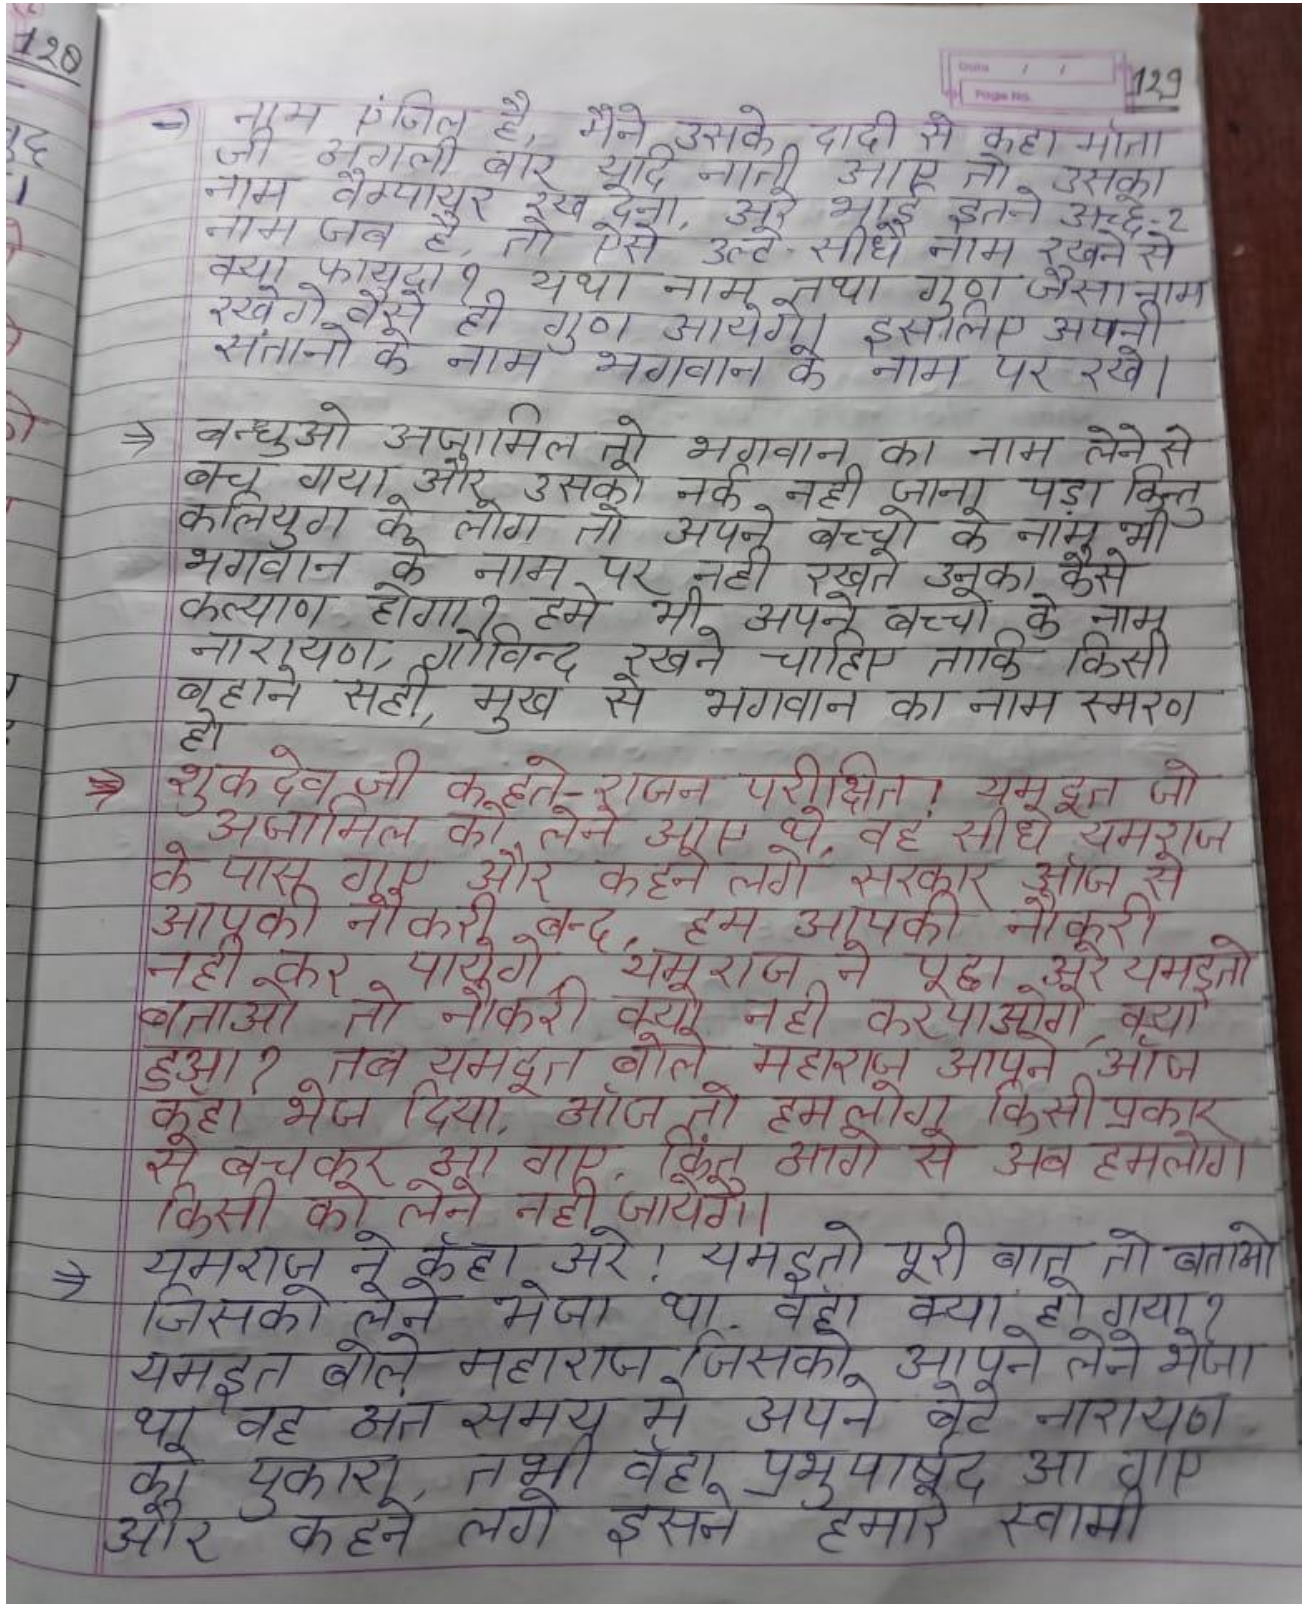 128
Date / /
Page No.
129
→ नाम एंजिल है, मैने उसके दादी से कहा माँता
जी अगली बार यदि नाती आए तो उसका
नाम वैम्पायर रख देना, अरे भाई इतने अच्छे-2
नाम जब है, तो ऐसे उल्टे-सीधे नाम रखने से
क्या फायदा? यथा नाम तथा गुण जैसा नाम
रखेगे वैसे ही गुण आयेगे। इसलिए अपनी
संतानो के नाम भगवान के नाम पर रखे।
⇒ बन्धुओ अजामिल तो भगवान का नाम लेने से
बच गया और उसको नर्क नही जाना पड़ा किन्तु
कलियुग के लोग तो अपने बच्चो के नाम भी
भगवान के नाम पर नही रखते उनका कैसे
कल्याण होगा? हमे भी अपने बच्चों के नाम
नारायण, गोविन्द रखने चाहिए ताकि किसी
बहाने सही, मुख से भगवान का नाम स्मरण
हो
⇒ शुकदेव जी कहते-राजन परीक्षित! यमदूत जो
अजामिल को लेने आए थे, वह सीधे यमराज
के पास गए और कहने लगे सरकार ऑज से
आपकी नौकरी बन्द, हम आपकी नौकरी
नही कर पायेगे, यमराज ने पूछा अरे यमदूतो
बताओ तो नौकरी क्यों नही करपाओगे, क्या
हुआ? तब यमदूत बोले महाराज आपने ऑज
कहाँ भेज दिया, ऑज तो हमलोग किसी प्रकार
से बचकर आ गए, किंतु आगे से अब हमलोग
किसी को लेने नही जायेगे।
⇒ यमराज ने कहाँ अरे! यमदूतो पूरी बात तो बताओ
जिसको लेने भेजा था, वहाँ क्या हो गया?
यमदूत बोले महाराज जिसको आपने लेने भेजा
था वह अंत समय मे अपने बेटे नारायण
को पुकारा, तभी वहाँ प्रभुपार्षद आ गए
और कहने लगे इसने हमारे स्वामी